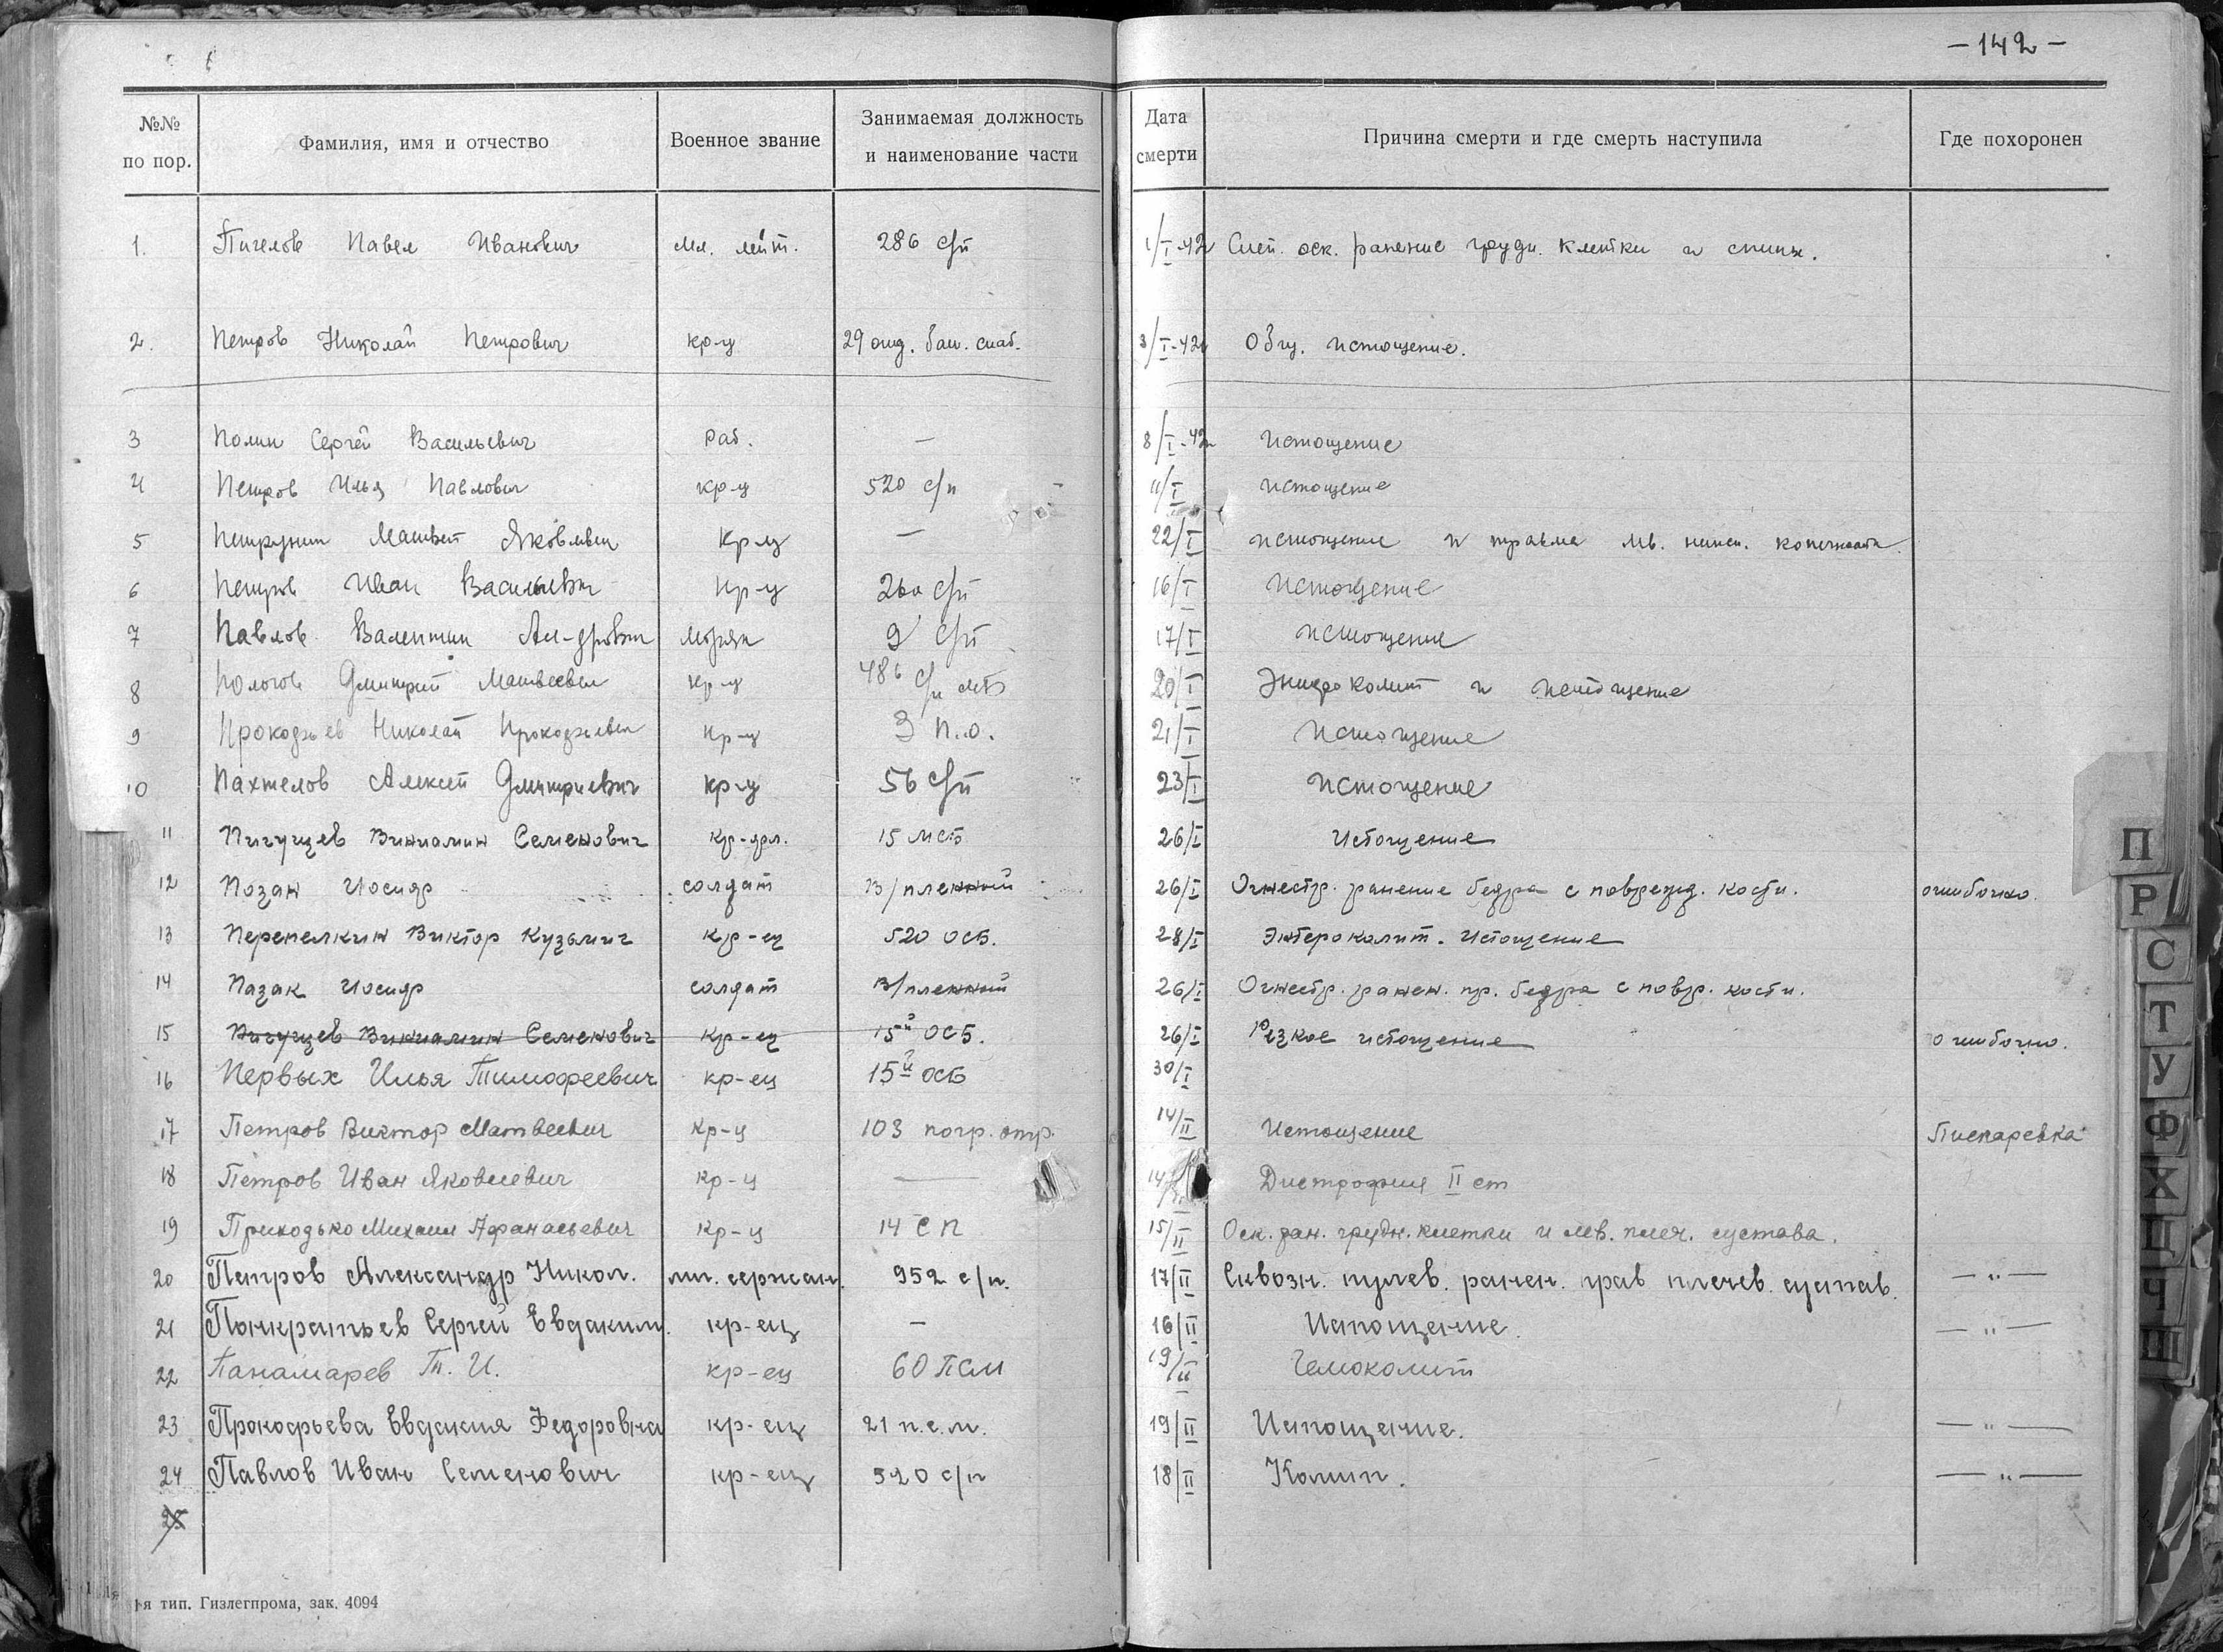 – 142 –
№№ по пор. Фамилия, имя и отчество Военное звание Занимаемая должность и наименование части Дата смерти Причина смерти и где смерть наступила Где похоронен
1. Пигелов Павел Иванович мл. лейт. 286 с/п 1/I-42 Слеп. оск. ранение грудн. клетки и спины.
2. Петров Николай Петрович кр-ц 29 отд. бат. снаб. 3/I-42 Общ. истощение.
3 Полин Сергей Васильевич раб. — 8/I-42 Истощение
4 Петров Илья Павлович кр-ц 520 с/п 11/I Истощение
5 Петрунин Матвей Яковлевич кр-ц — 22/I истощение и травма лев. нижн. конечности.
6 Петров Иван Васильевич кр-ц 260 с/п 16/I Истощение
7 Павлов Валентин Ал-дрович моряк 9 с/п 17/I истощение
8 Пологов Дмитрий Матвеевич кр-ц 486 с/п 20/I Энтероколит и истощение
9 Прокофьев Николай Прокофьевич кр-ц 3 п.о. 21/I Истощение
10 Пахтелов Алексей Дмитриевич кр-ц 56 с/п 23/I Истощение
11 Пигущев Виниамин Семенович кр-фл. 15 мсб 26/I Истощение
12 Позан Иосиф солдат в/пленный 26/I Огнестр. ранение бедра с поврежд. кости. ошибочно.
13 Перепелкин Виктор Кузьмич кр-ец 520 осб. 28/I Энтероколит. Истощение
14 Пазак Иосиф солдат в/пленный 26/I Огнестр. ранен. пр. бедра с повр. кости.
15 Пигущев Виниамин Семенович кр-ец 15й осб. 26/I Резкое истощение ошибочно.
16 Первых Илья Тимофеевич кр-ец 15й осб 30/I
17 Петров Виктор Матвеевич кр-ц 103 погр. отр. 14/II Истощение Пискаревка
18 Петров Иван Яковлевич кр-ц — 14/II Дистрофия II ст
19 Приходько Михаил Афанасьевич кр-ц 14 с п 15/II Оск. ран. грудн. клетки и лев. плеч. сустава.
20 Петров Александр Никол. мл. сержан. 952 с/п. 17/II Сквозн. пулев. ранен. прав плечев. сустав. — " —
21 Панкратьев Сергей Евдаким. кр-ец — 16/II Истощение. — " —
22 Панамарев Т. И. кр-ец 60 ПСМ 19/II Гемоколит
23 Прокофьева Евдакия Федоровна кр-ец 21 п.с.м. 19/II Истощение. — " —
24 Павлов Иван Семенович кр-ец 520 с/п 18/II Колит. — " —
25
я тип. Гизлегпрома, зак. 4094
П
Р
С
Т
У
Ф
Х
Ц
Ч
Ш